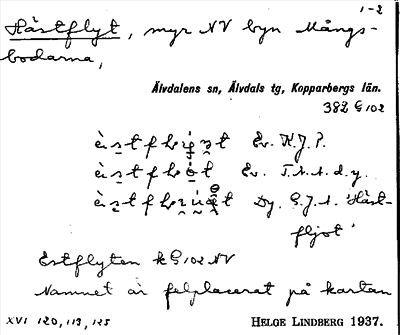 1-2
Hästflyt, myr NV byn Mångs-
bodarna,
Älvdalens sn, Älvdals tg, Kopparbergs län.
382 G 102
Ev. K.J.P.
Ev. T.A.A. d.y.
Dy. G.J.A. 'Häst-
fljot'
Estflyten k G 102 NV
Namnet är felplacerat på kartan
XVI 120, 119, 125
HELGE LINDBERG 1937.